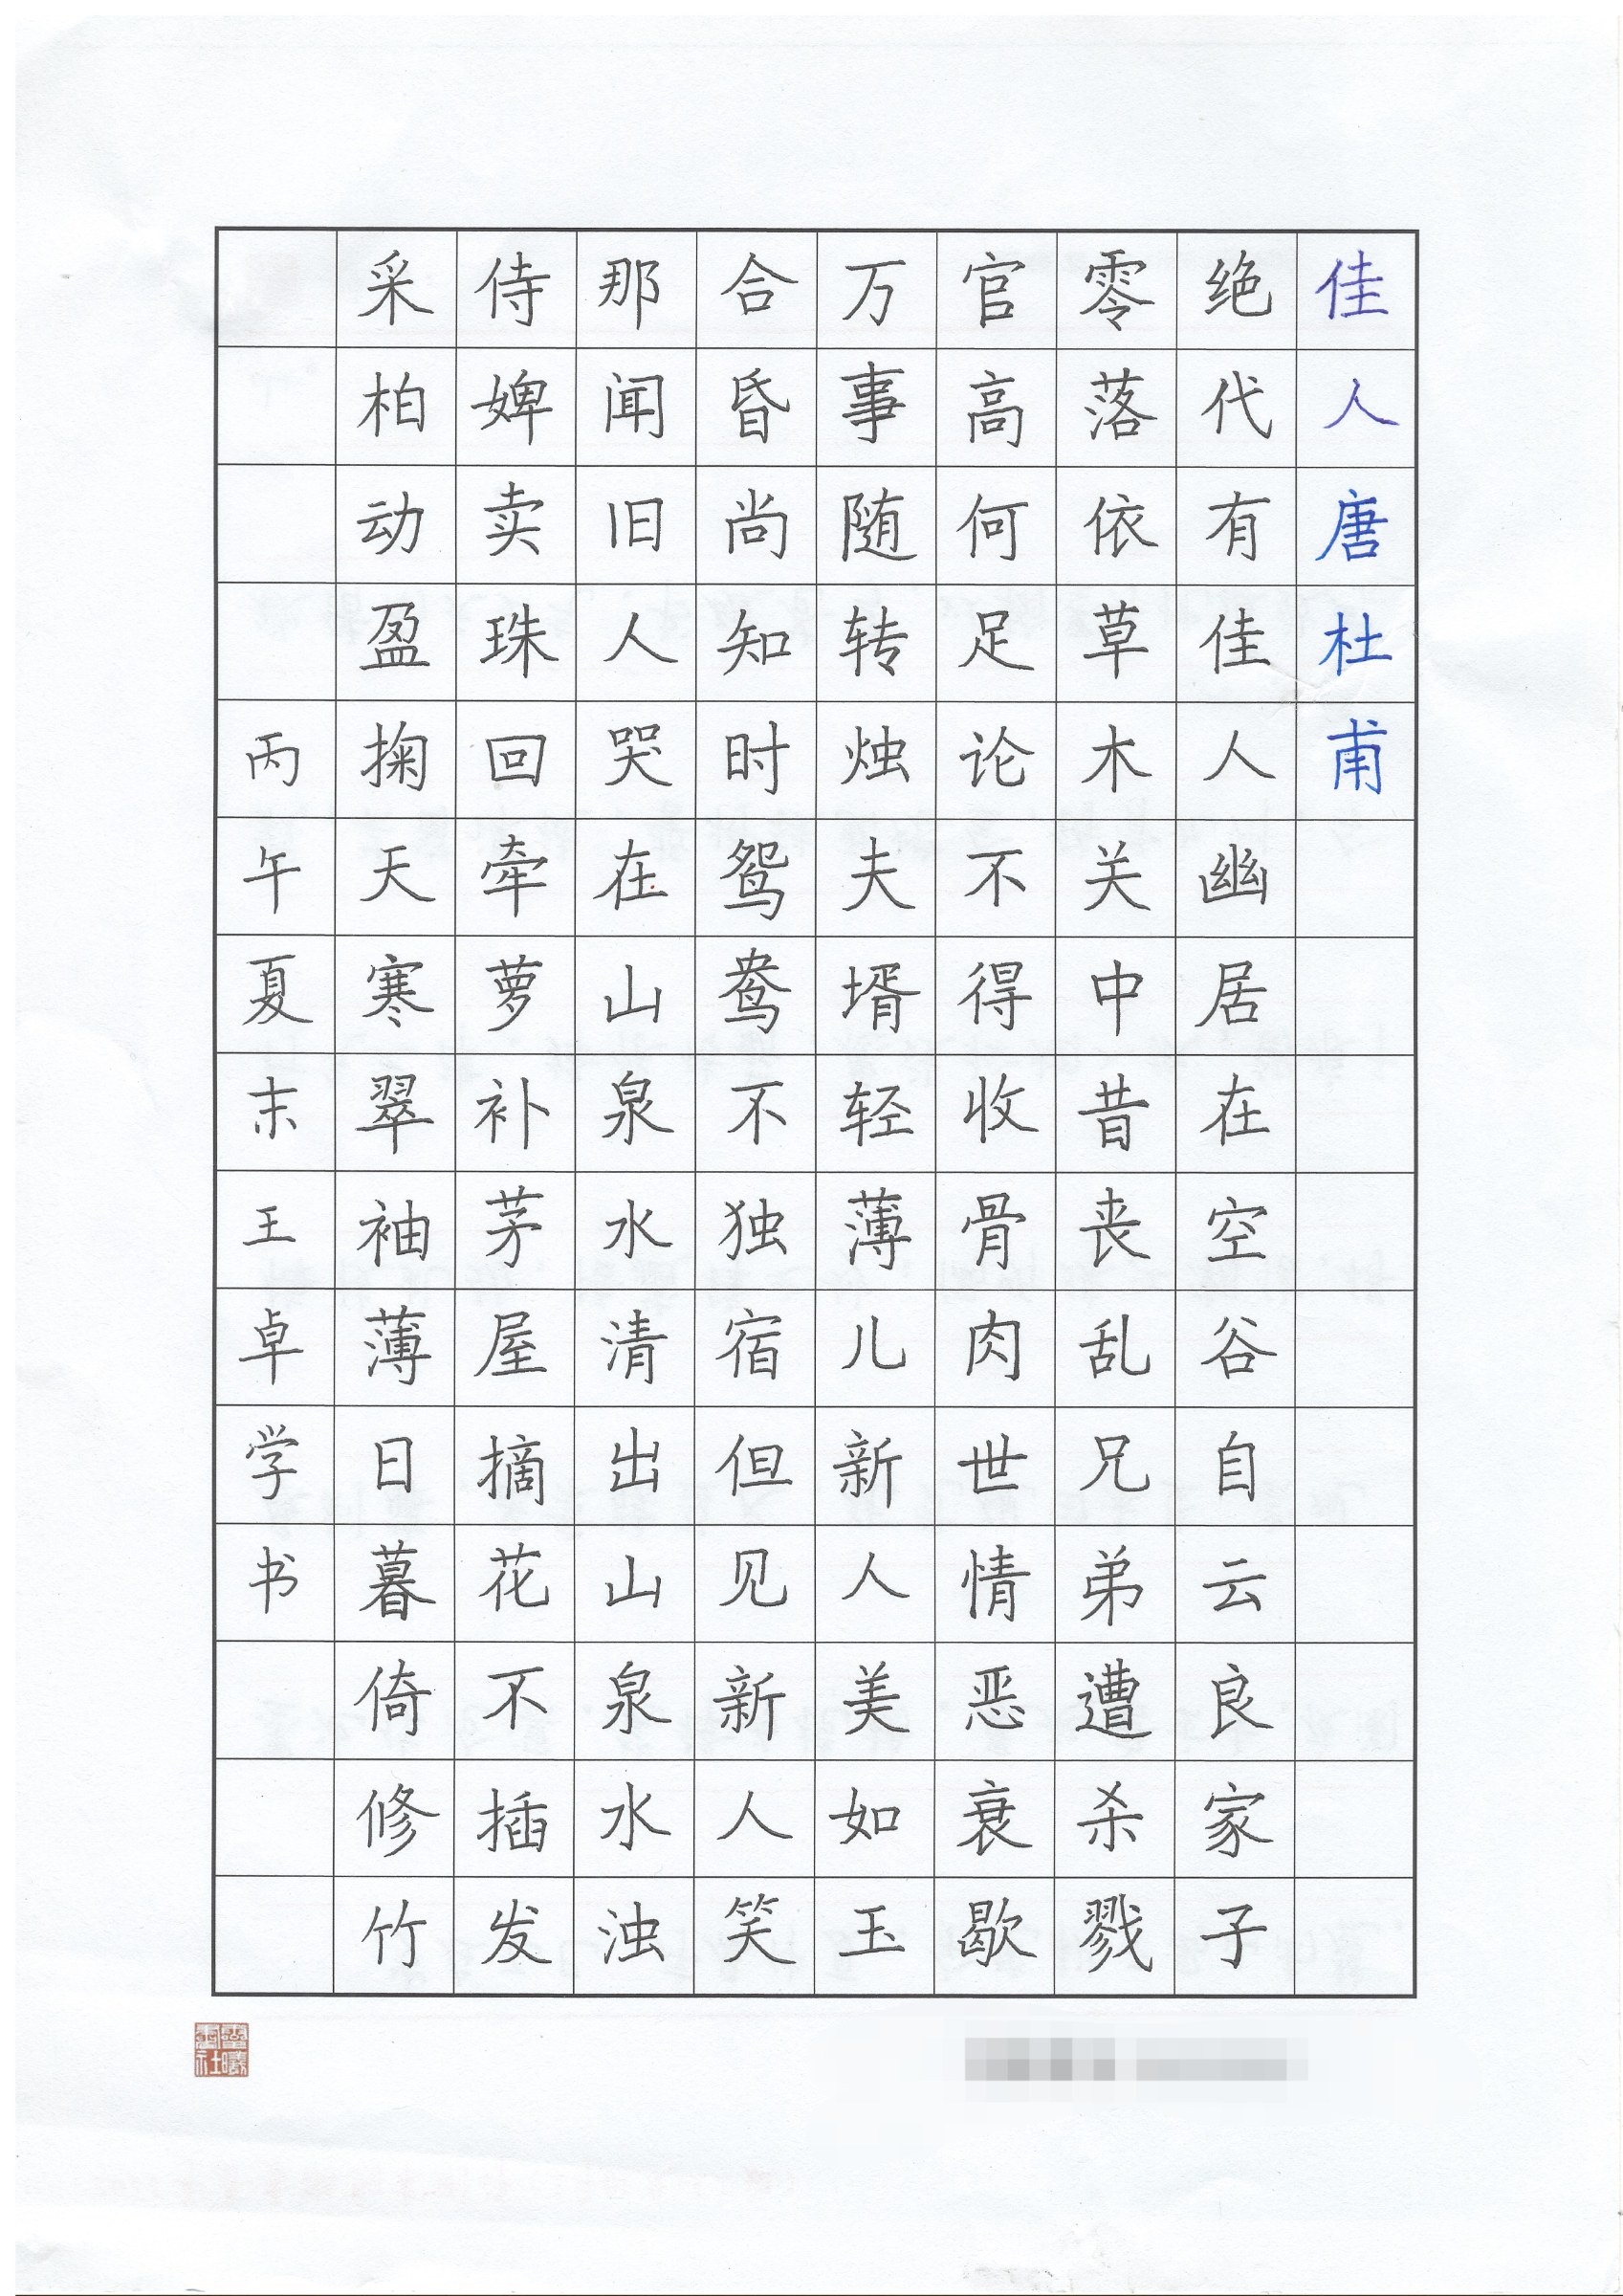 佳人唐杜甫
绝代有佳人幽居在空谷自云良家子
零落依草木关中昔丧乱兄弟遭杀戮
官高何足论不得收骨肉世情恶衰歇
万事随转烛夫婿轻薄儿新人美如玉
合昏尚知时鸳鸯不独宿但见新人笑
那闻旧人哭在山泉水清出山泉水浊
侍婢卖珠回牵萝补茅屋摘花不插发
采柏动盈掬天寒翠袖薄日暮倚修竹
丙午夏末王卓学书